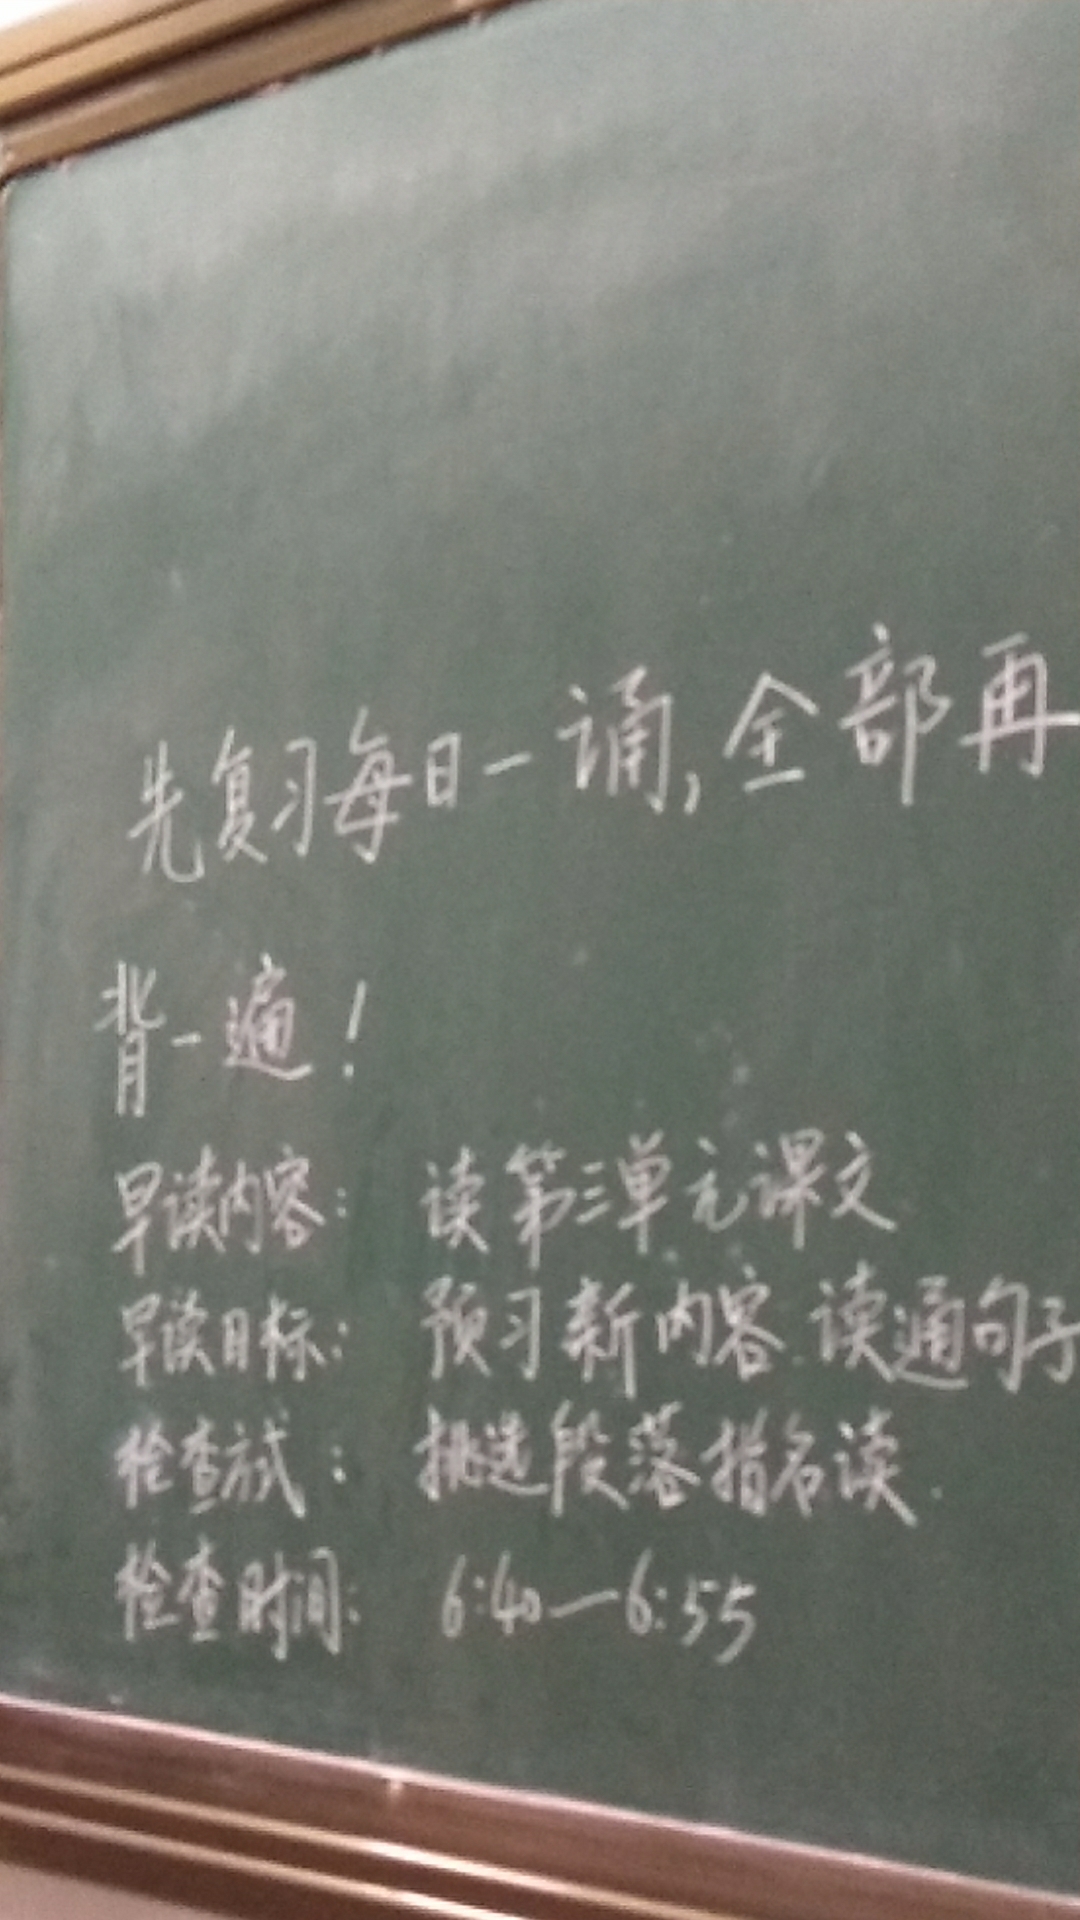 先复习每日一诵,全部再
背一遍！
早读内容： 读第三单元课文
早读目标： 预习新内容.读通句子
检查方式： 挑选段落指名读.
检查时间： 6:40—6:55